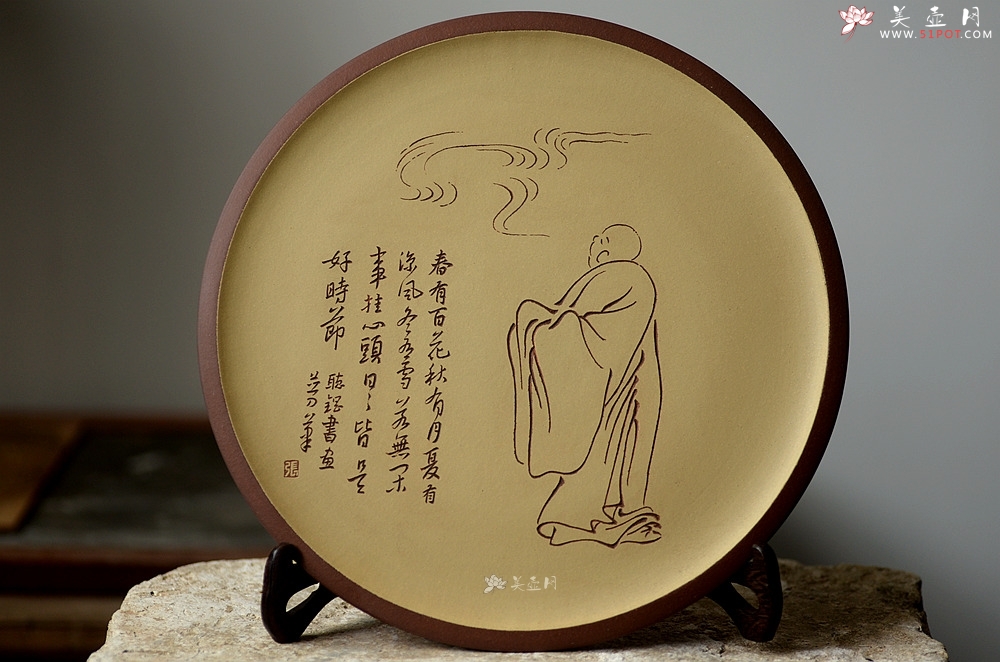 美壶网
WWW.51POT.COM
春有百花秋有月夏有
涼风冬有雪若無闲
事挂心頭日々皆是
好時節
書画
張
美壶网